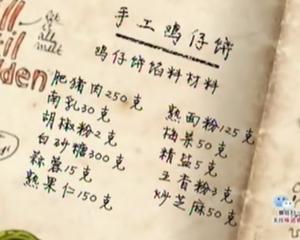 手工鸡仔饼
鸡仔饼馅料材料
肥猪肉250克
南乳30克
胡椒粉2克
白砂糖300克
蒜蓉15克
熟果仁150克
熟面粉125克
梅菜50克
精盐5克
五香粉3克
炒芝麻50克